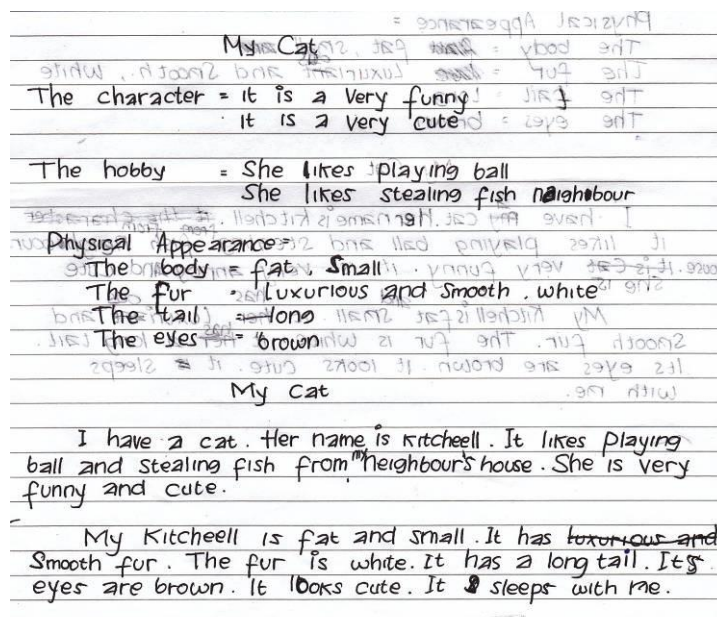 My Cat
The character = it is a very funny
it is a very cute
The hobby = She likes playing ball
She likes stealing fish neighbour
Physical Appearance =
The body = fat, small
The fur luxurious and smooth, white
The tail = long
The eyes = brown
My cat
I have a cat. Her name is Kitcheell. It likes playing
ball and stealing fish from my neighbour's house. She is very
funny and cute.
My Kitcheell is fat and small. It has luxurious and
smooth fur. The fur is white. It has a long tail. Its
eyes are brown. It looks cute. It sleeps with me.